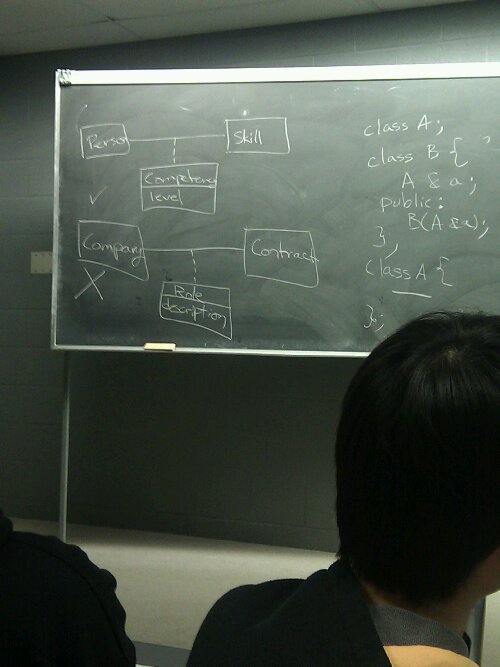 Person
Skill
Competency
level
Company
Contract
Role
description
class A;
class B {
A & a;
public:
B(A &a);
};
class A {
};